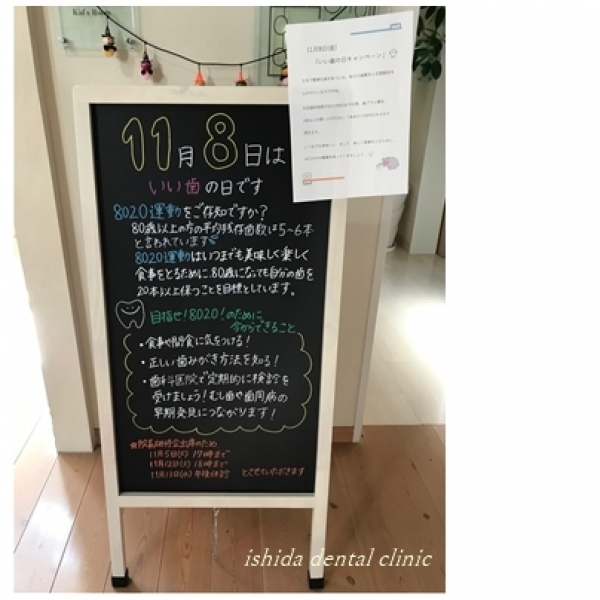 Kid's Room
11月8日(金)
「いい歯の日キャンペーン」
11月8日は
いい歯の日です
8020運動をご存知ですか?
80歳以上の方の平均残存歯数は5~6本
と言われています
8020運動はいつまでも美味しく楽しく
食事をとるために、80歳になっても自分の歯を
20本以上保つことを目標としています。
目指せ!8020!のために
今からできること
・食事や間食に気をつける!
・正しい歯みがき方法を知る!
・歯科医院で定期的に検診を
受けましょう!むし歯や歯周病の
早期発見につながります!
★院長研修会出席のため
11月5日(火) 19時まで
11月12日(火) 18時まで
11月13日(水) 午後休診 とさせていただきます
ishida dental clinic